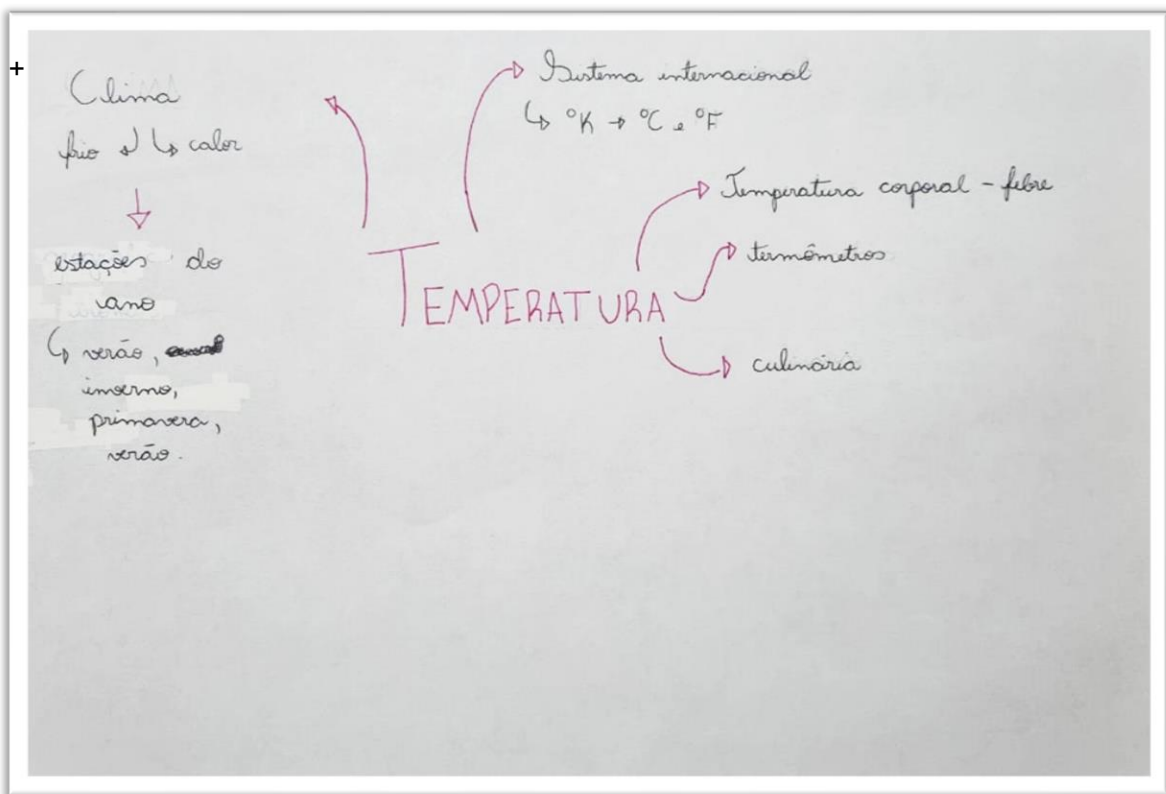 +
Clima
frio ↲ ↳ calor
↓
estações do
ano
↳ verão,
inverno,
primavera,
verão.
Sistema internacional
↳ °K → °C e °F
TEMPERATURA
Temperatura corporal - febre
termômetros
culinária